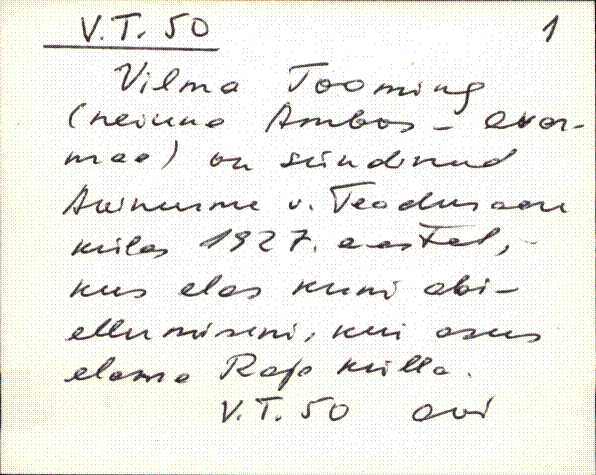 V.T. 50 1
Vilma Tooming
(neiuna Ambos - Avar-
maa) on sündinud
Avinurme v. Teadusaou
külas 1927. aastal,
kus elas kuni abi-
ellumiseni, kui asus
elama Raja külla.
V.T. 50 avi